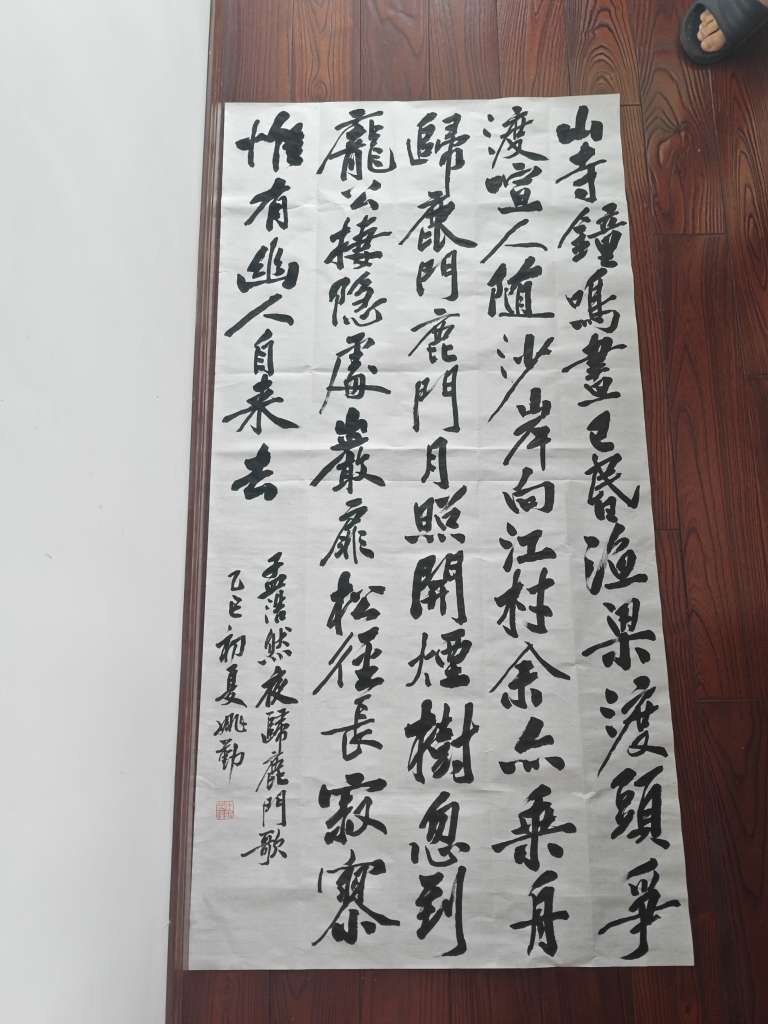 山寺鐘鳴晝已昏渔梁渡頭爭
渡喧人随沙岸向江村余亦乘舟
歸鹿門鹿門月照開煙樹忽到
龐公棲隐處巖扉松徑長寂寥
惟有幽人自来去
孟浩然夜歸鹿門歌
乙巳初夏姚勤